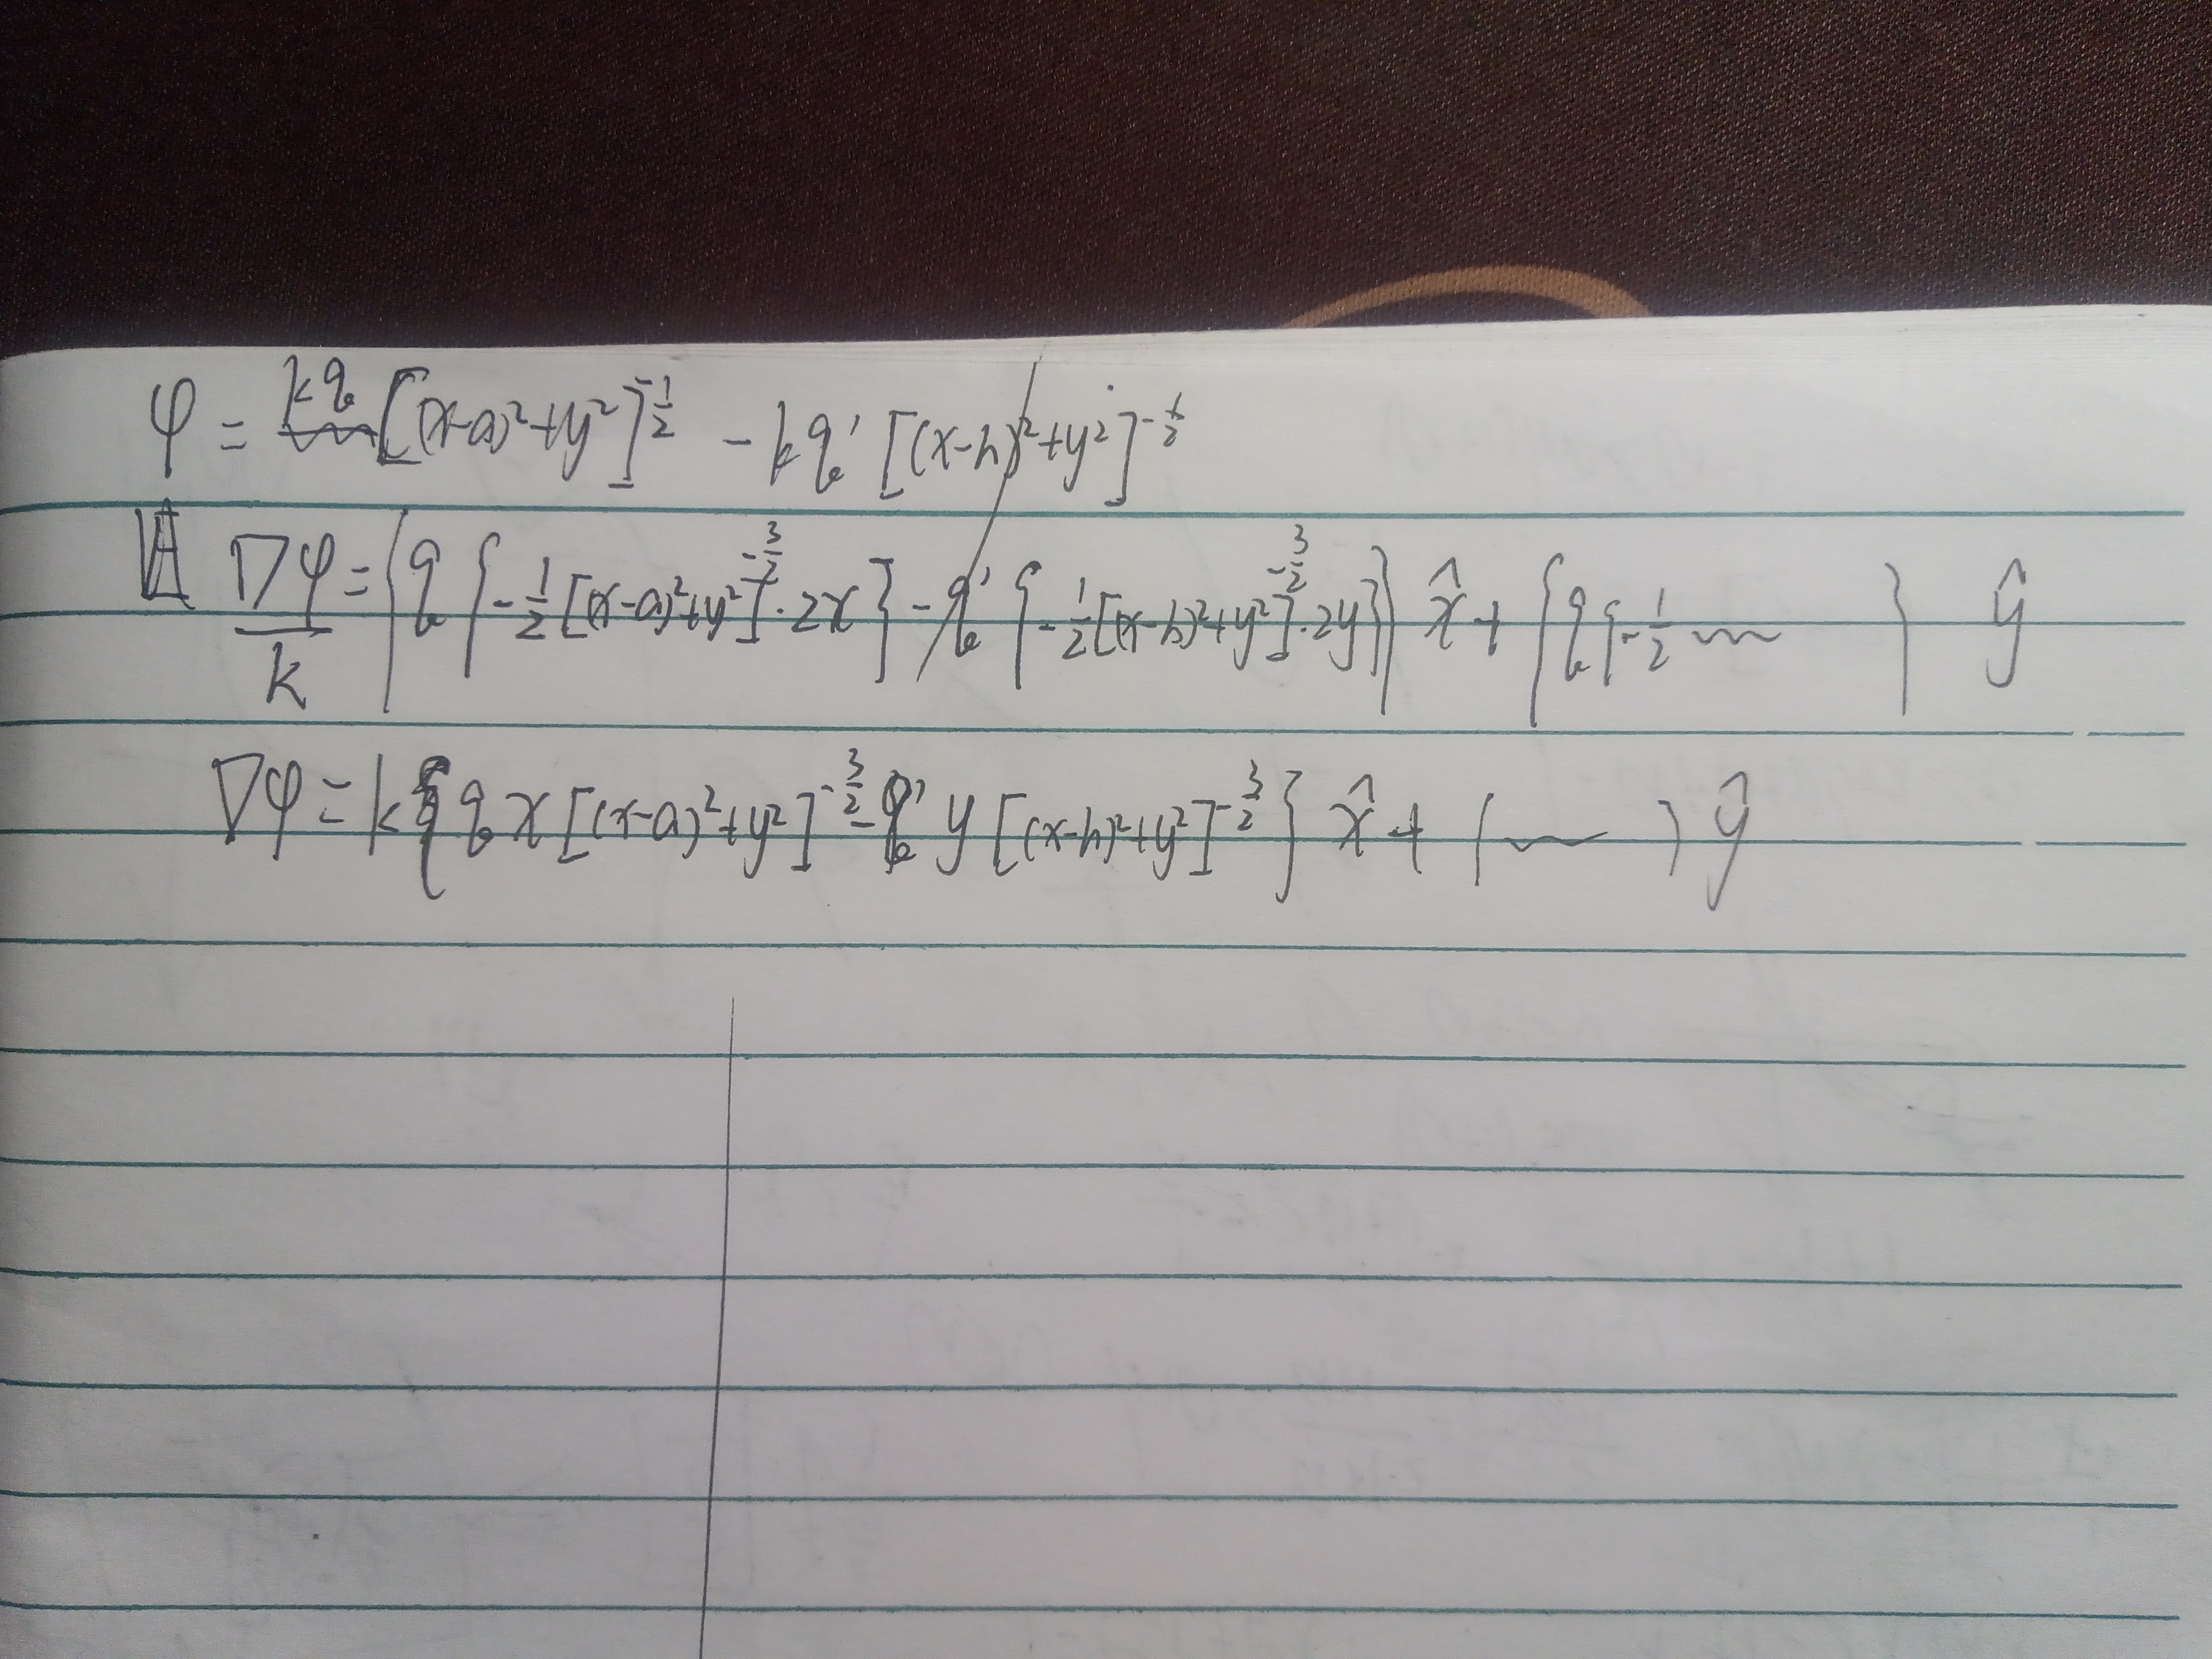 φ = kq [(x-a)²+y²]^{-1/2} - kq' [(x-h)²+y²]^{-1/2}
∇φ/k = {q {-1/2 [(x-a)²+y²]^{-3/2} · 2x} - q' {-1/2 [(x-h)²+y²]^{-3/2} · 2y}} x̂ + {q {-1/2 ~~~ } ŷ
∇φ = k{q x [(x-a)²+y²]^{-3/2} - q' y [(x-h)²+y²]^{-3/2}} x̂ + (~~~) ŷ